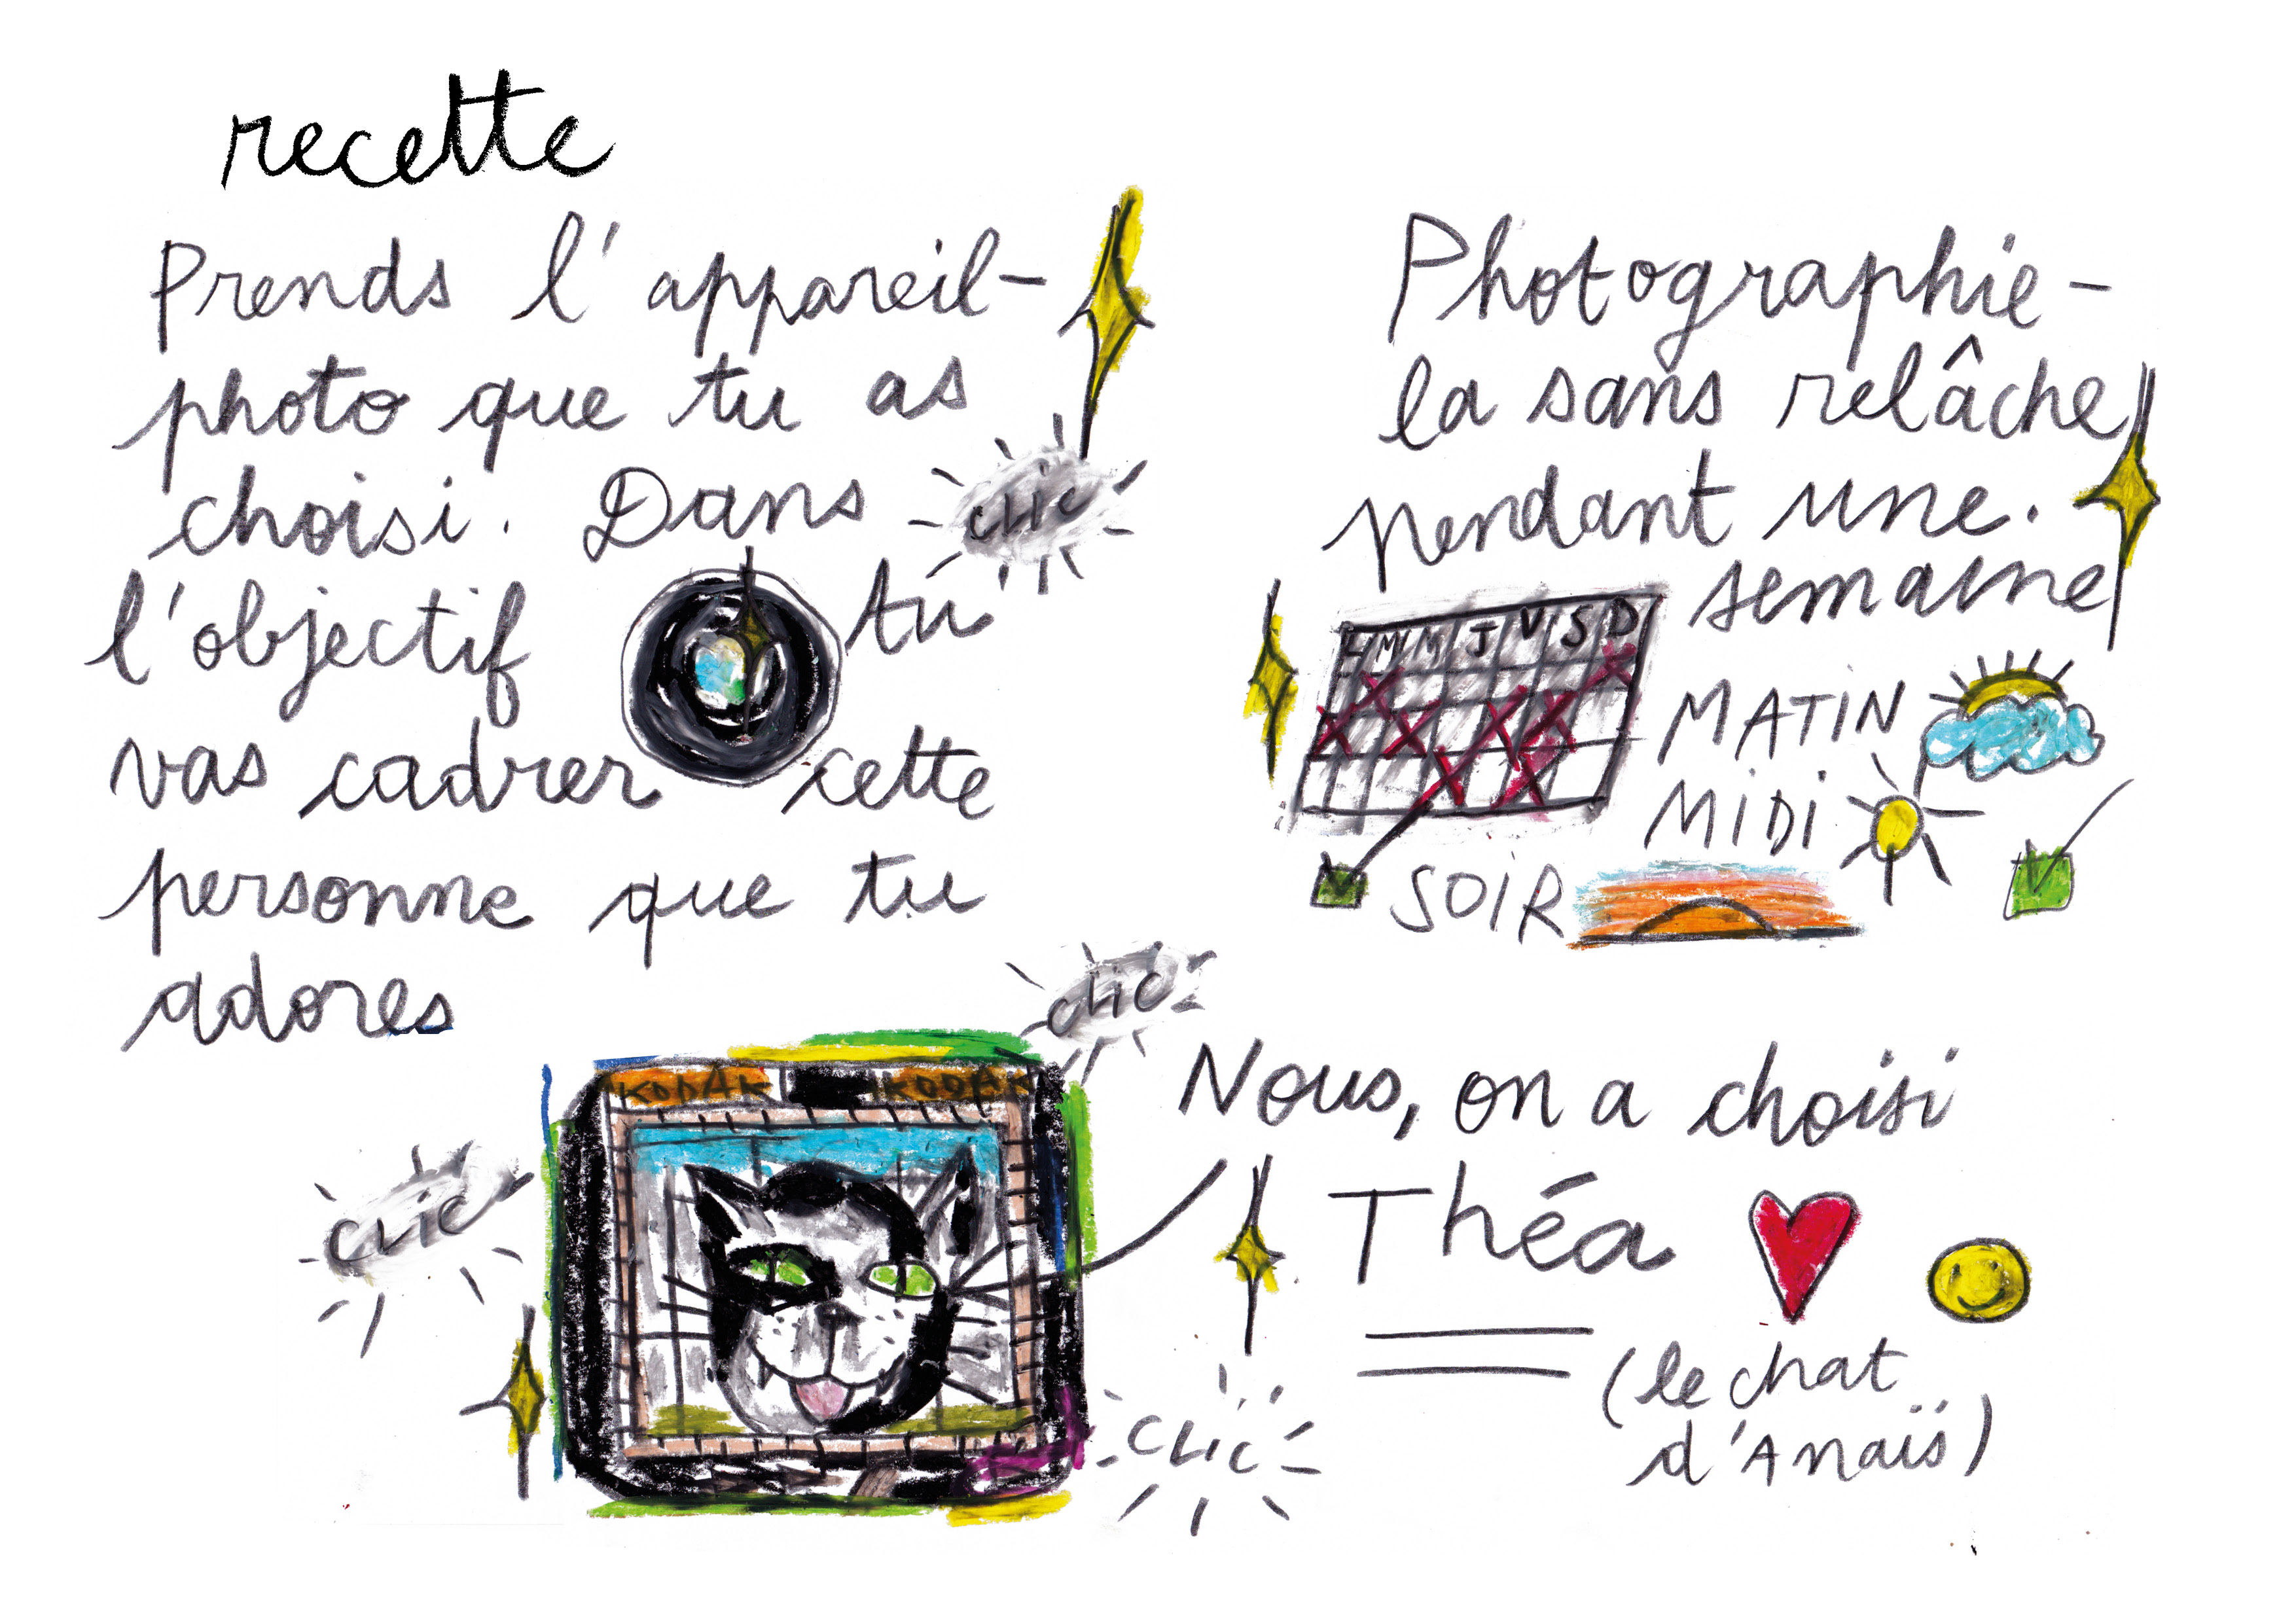 recette
Prends l'appareil-
photo que tu as
choisi. Dans
clic
l'objectif tu
vas cadrer cette
personne que tu
adores
clic
KODAK KODAK
clic
clic
Photographie-
la sans relâche
pendant une.
semaine
L M M J V S D
MATIN
MIDI
SOIR
Nous, on a choisi
Théa
(le chat
d'Anaïs)